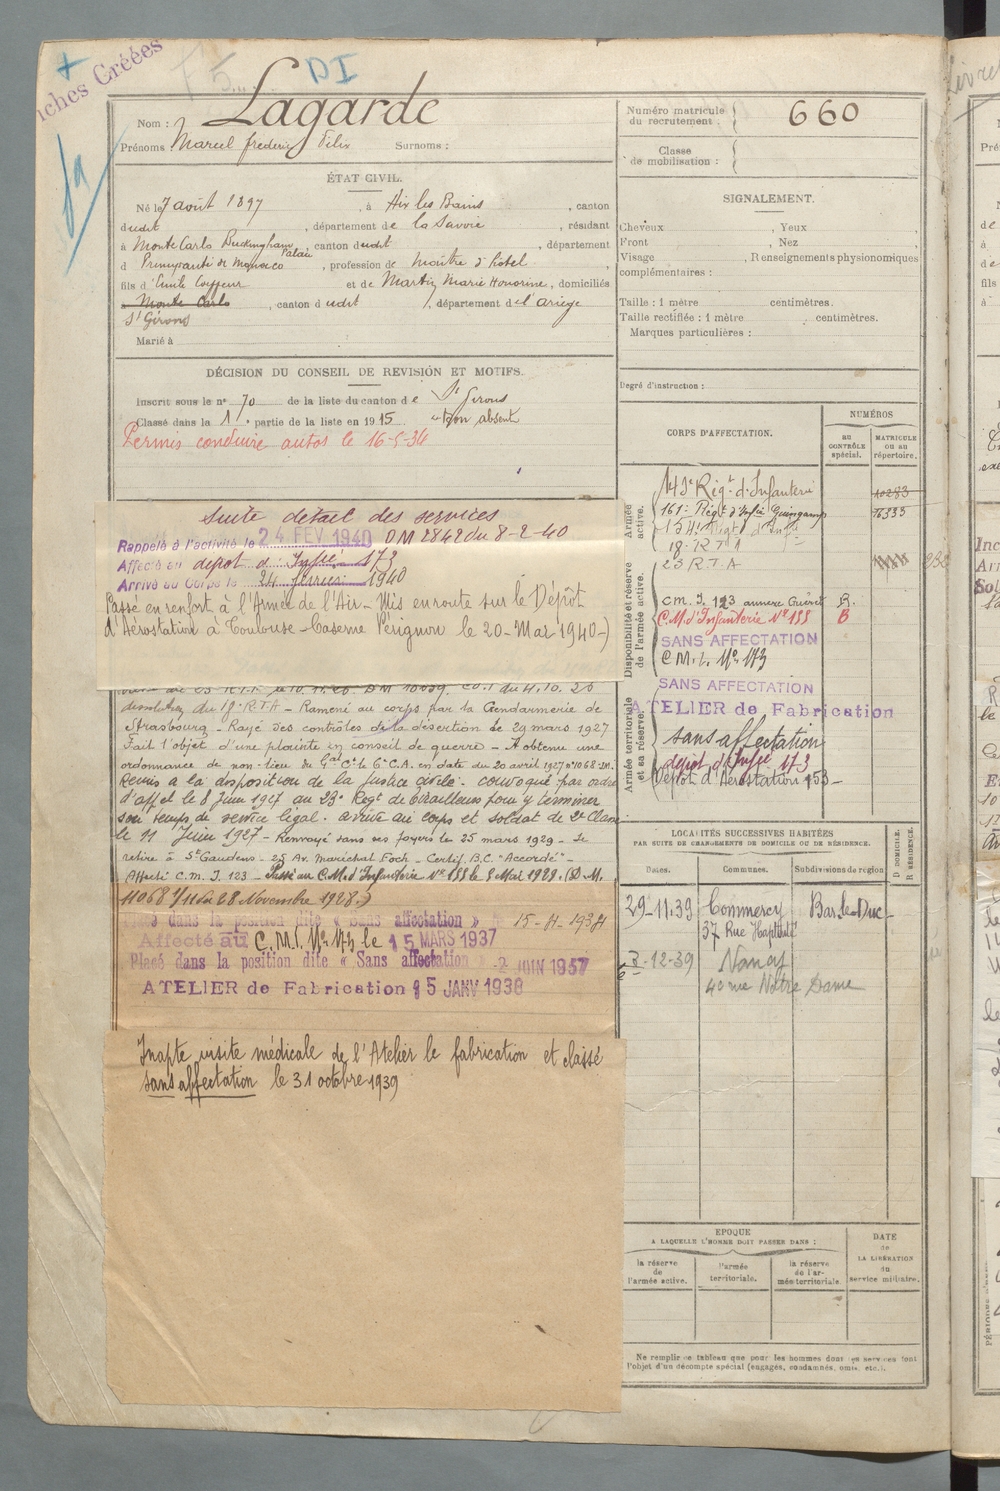 iches Créées
DI
Nom : Lagarde
Prénoms Marcel frederic Félix Surnoms :
ÉTAT CIVIL.
Né le 7 août 1897, à Aix les Bains, canton
dudit, département de la Savoie, résidant
à Monte Carlo Buckingham Palace, canton dudit, département
d Principauté de Monaco, profession de maître d'hôtel
fils d'Emile Coiffeur et de Martin Marie Honorine, domiciliés
à Monte Carlo, canton dudit, département de l'ariège
St Girons
Marié à
DÉCISION DU CONSEIL DE REVISION ET MOTIFS.
Inscrit sous le n° 70 de la liste du canton de St Girons
Classé dans la 1re partie de la liste en 1915 "bon absent
Permis conduire autos le 16-5-34
Suite détail des services
Rappelé à l'activité le 24 FEV 1940 DM 2842 du 8-2-40
Affecté au dépôt d'Infie 173
Arrivé au Corps le 24 février 1940
Passé en renfort à l'Armée de l'Air - Mis en route sur le Dépôt
d'Aérostation à Toulouse - Caserne Pérignon le 20-Mai-1940-)
du 23 R.T.T. le 10.11.26 DM 10039, du 4.10.26
du 18e R.T.A - Ramené au corps par la Gendarmerie de
Strasbourg - Rayé des contrôles de la désertion le 29 mars 1927
Fait l'objet d'une plainte en conseil de guerre - A obtenu une
ordonnance de non-lieu du Gal Ct le 6e C.A. en date du 20 avril 1927 n° 1068 DM.
Remis à la disposition de la Justice civile. convoqué par ordre
d'affel le 8 Juin 1927 au 23e Regt de Tirailleurs pour y terminer
son temps de service légal. arrivé au corps et soldat de 2e Classe
le 11 Juin 1927 - Renvoyé dans ses foyers le 25 mars 1929 - Se
retire à St Gaudens - 25 Av. Maréchal Foch - Certif. B.C. "Accordé" -
Affecté C.M.I. 123 - Passé au C.M. d'Infanterie N° 188 le 8 Mai 1929. (D.M.
11068 1/11 du 28 Novembre 1928.)
Placé dans la position dite « Sans affectation » 15-4-1934
Affecté au C.M.I. N° 173 le 15 MARS 1937
Placé dans la position dite « Sans affectation » -2 JUIN 1937
ATELIER de Fabrication 5 JANV 1938
Inapte visite médicale de l'Atelier de fabrication et classé
sans affectation le 31 octobre 1939
Numéro matricule du recrutement : 660
Classe de mobilisation :
SIGNALEMENT.
Cheveux , Yeux
Front , Nez
Visage , Renseignements physionomiques
complémentaires :
Taille : 1 mètre centimètres.
Taille rectifiée : 1 mètre centimètres.
Marques particulières :
Degré d'instruction :
CORPS D'AFFECTATION.
NUMÉROS
AU CONTRÔLE spécial.
MATRICULE ou au répertoire.
Armée active.
143e Régt d'Infanterie 10283
161e Régt d'Infie Guingamp 16333
154e Régt d'Infie
18e R.T.A
Disponibilité et réserve de l'armée active.
23 R.T.A
C.M.I. 123 annexe Guéret R.
C.M. d'Infanterie N° 188 B
SANS AFFECTATION
C.M.I. N° 173
Armée territoriale et sa réserve.
SANS AFFECTATION
ATELIER de Fabrication
sans affectation
dépôt d'Infie 173
Dépôt d'Aérostation 153-
LOCALITÉS SUCCESSIVES HABITÉES
PAR SUITE DE CHANGEMENTS DE DOMICILE OU DE RÉSIDENCE.
Dates. Communes. Subdivisions de région. D DOMICILE. R RÉSIDENCE.
29-11-39 Commercy Bar-le-Duc
37 Rue
-12-39 Nancy
40 rue Notre Dame
EPOQUE
A LAQUELLE L'HOMME DOIT PASSER DANS :
la réserve de l'armée active.
l'armée territoriale.
la réserve de l'armée territoriale.
DATE de LA LIBÉRATION du service militaire.
Ne remplir ce tableau que pour les hommes dont les services font
l'objet d'un décompte spécial (engagés, condamnés, omis, etc.).